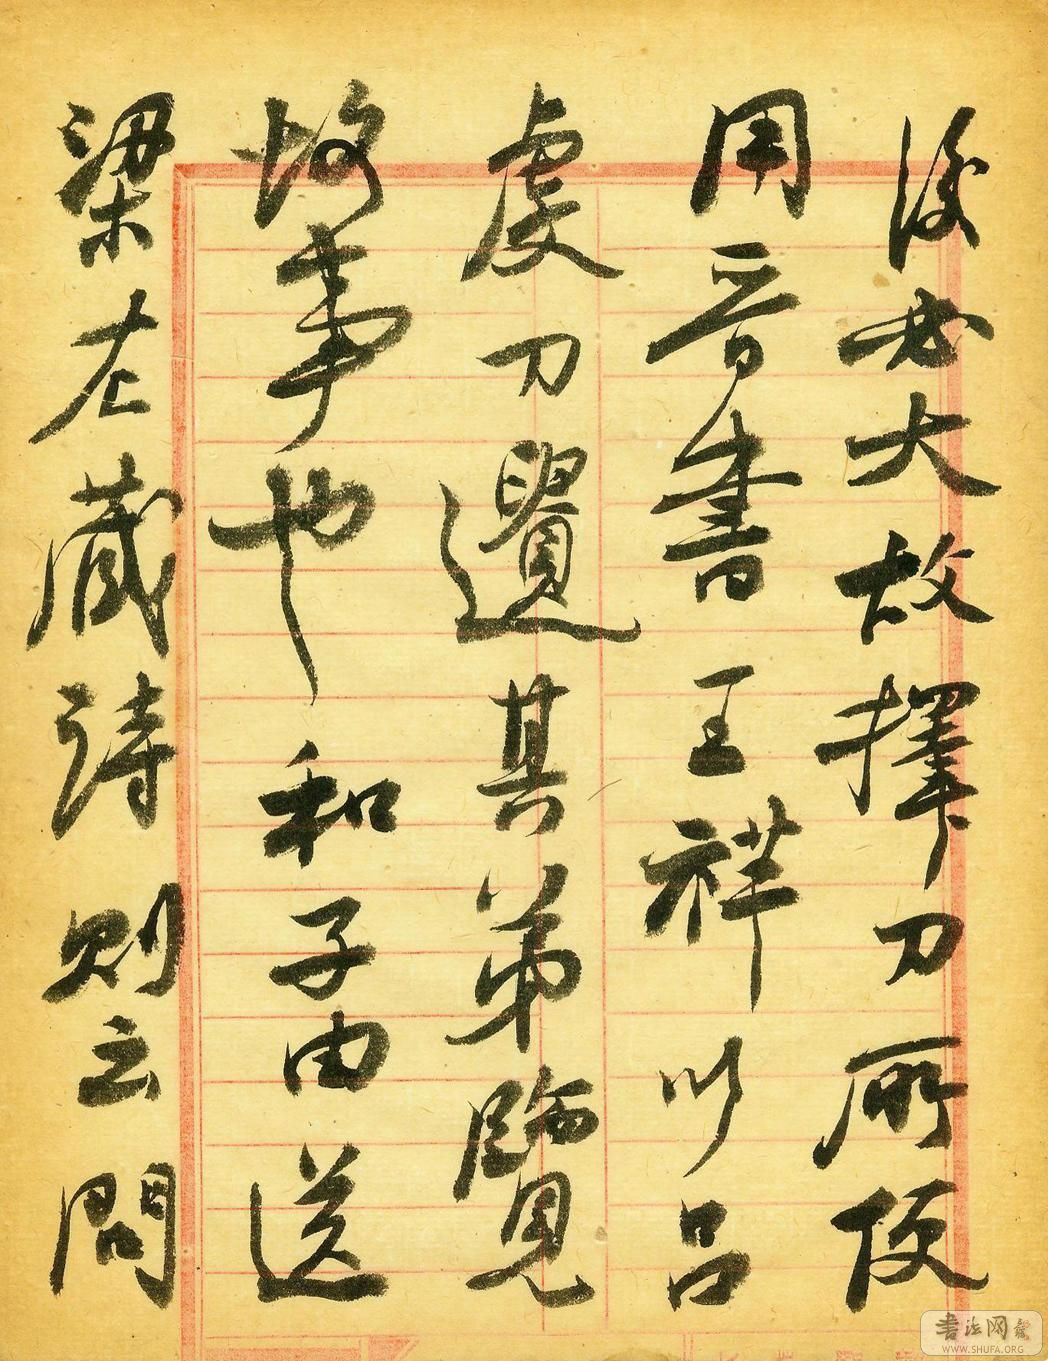 後必大故擇刀所便
用晋書王祥以吕
虔刀遺其弟覽
故事也和子由送
梁左藏詩則云問
書法网
WWW.SHUFA.ORG